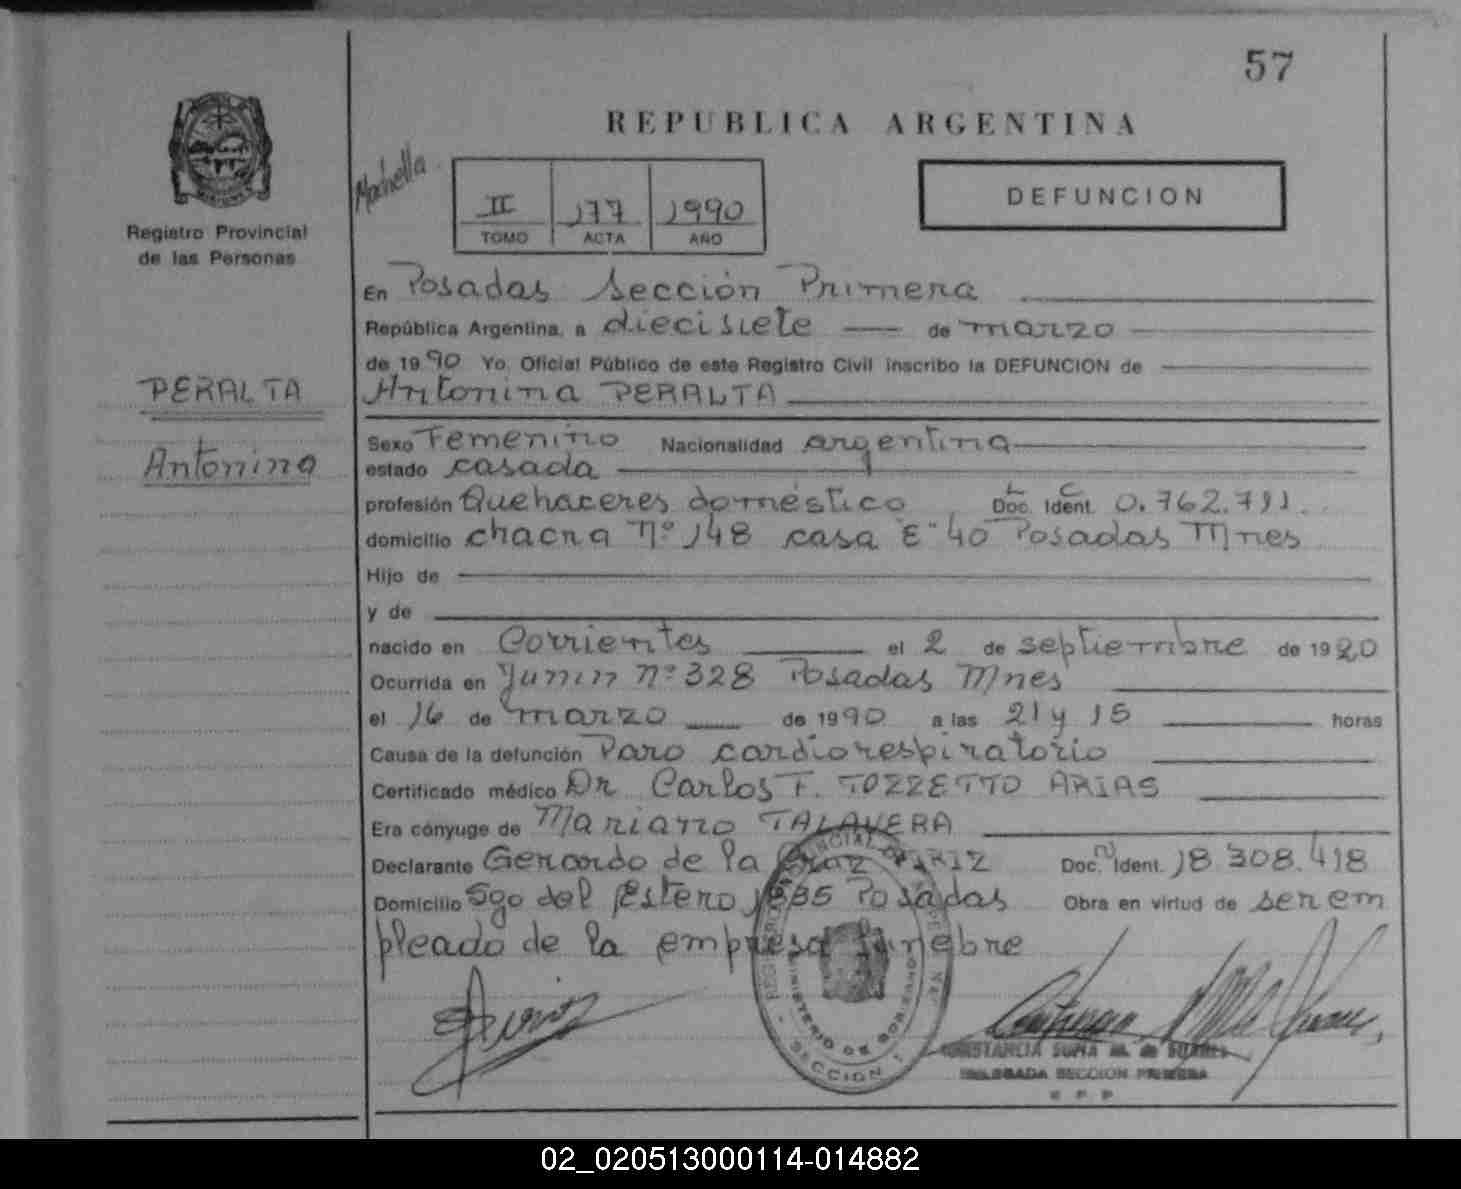 57
REPUBLICA ARGENTINA
DEFUNCION
II 177 1990
TOMO ACTA AÑO
Registro Provincial
de las Personas
PERALTA
Antonina
En Posadas Sección Primera
República Argentina, a diecisiete de marzo
de 1990 Yo, Oficial Público de este Registro Civil inscribo la DEFUNCION de
Antonina PERALTA
Sexo Femenino Nacionalidad argentina
estado casada
profesión Quehaceres doméstico L C Doc. Ident. 0.762.711.
domicilio chacra Nº 148 casa E-40 Posadas Mnes
Hijo de
y de
nacido en Corrientes el 2 de septiembre de 1920
Ocurrida en Junin nº 328 Posadas Mnes
el 16 de marzo de 1990 a las 21 y 15 horas
Causa de la defunción Paro cardiorespiratorio
Certificado médico Dr Carlos F. TOZZETTO ARIAS
Era cónyuge de Mariano TALAVERA
Declarante Gerardo de la Cruz Doc. N Ident. 18.308.418
Domicilio Sgo del Estero 1835 Posadas Obra en virtud de ser em
pleado de la empresa funebre
MINISTERIO DE GOBIERNO
SECCION 1
CONSTANCIA SUPIA M. de
DELEGADA SECCION PRIMERA
R P P
02_020513000114-014882